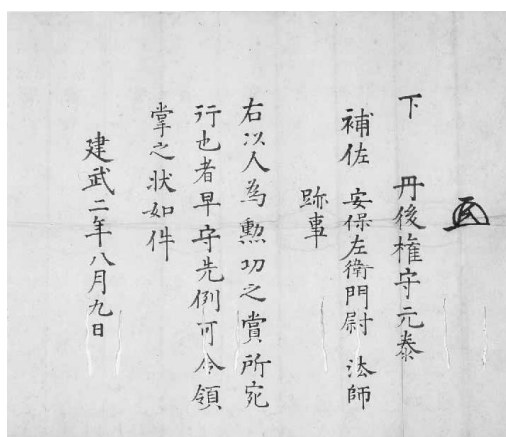 下 丹後権守元泰
補佐 安保左衛門尉 法師
跡事
右以人為勲功之賞所宛
行也者早守先例可令領
掌之状如件
建武二年八月九日